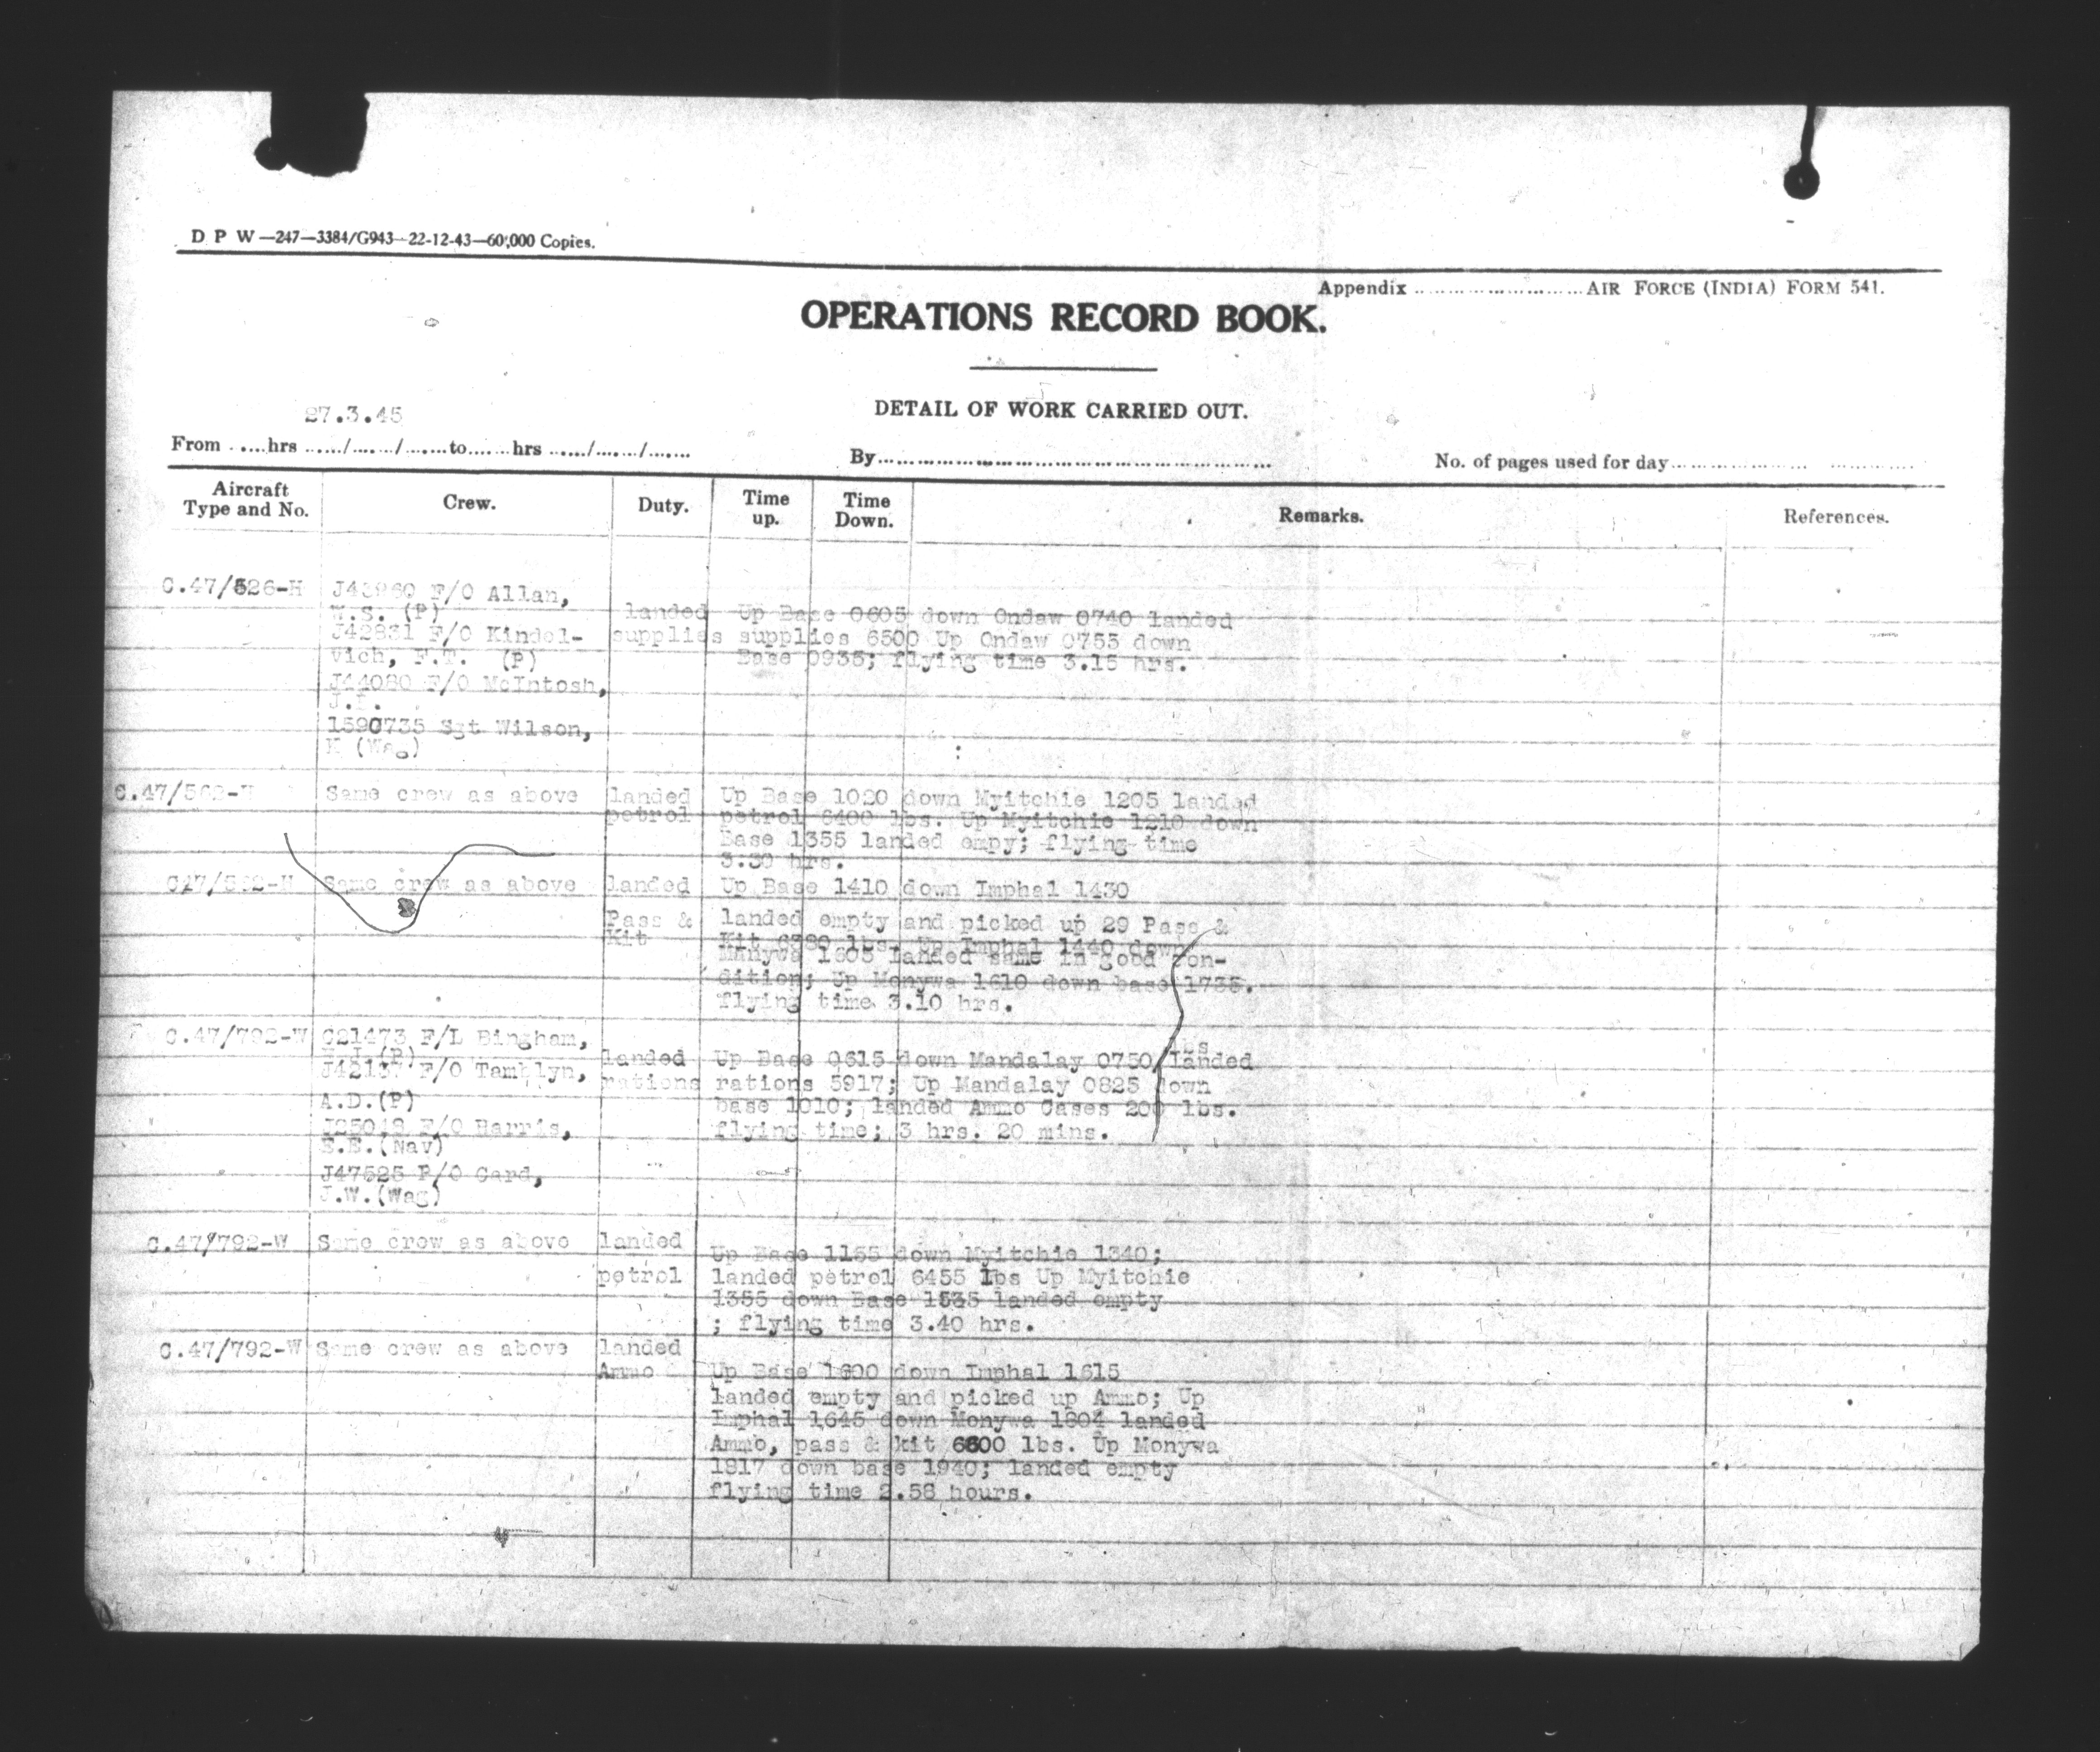 D P W—247—3384/G943—22-12-43—60,000 Copies.
Appendix ........................ AIR FORCE (INDIA) FORM 541.
OPERATIONS RECORD BOOK.
DETAIL OF WORK CARRIED OUT.
27.3.45
From ......hrs ....../......./.......to.......hrs ....../......./.......
By................................................................
No. of pages used for day........................................
Aircraft Type and No.
Crew.
Duty.
Time up.
Time Down.
Remarks.
References.
C.47/526-H
F/O Allan,
W.S. (P)
J42831 F/O Kindel-
vich, F.T. (P)
J44080 F/O McIntosh,
1590735 Sgt Wilson,
(Wag)
landed
supplies
Up Base 0605 down Ondaw 0740 landed
supplies 6500 Up Ondaw 0755 down
Base 0935; flying time 3.15 hrs.
C.47/562-H
Same crew as above
landed
petrol
Up Base 1020 down Myitchie 1205 landed
petrol 6400 lbs. Up Myitchie 1210 down
Base 1355 landed empy; flying time
3.30 hrs.
C47/562-H
Same crew as above
landed
Pass &
Kit
Up Base 1410 down Imphal 1430
landed empty and picked up 29 Pass &
Kit 6380 lbs. Up Imphal 1440 down
Manywa 1605 landed same in good con-
dition; Up Monywa 1610 down base 1735.
flying time 3.10 hrs.
C.47/792-W
C21473 F/L Bingham,
(P)
J42137 F/O Tamblyn,
A.D.(P)
J25048 F/O Harris,
S.E.(Nav)
J47525 P/O Card,
J.W.(Wag)
landed
rations
lbs
Up Base 0615 down Mandalay 0750/landed
rations 5917; Up Mandalay 0825 down
base 1010; landed Ammo Cases 200 lbs.
flying time; 3 hrs. 20 mins.
C.47/792-W
Same crew as above
landed
petrol
Up Base 1155 down Myitchie 1340;
landed petrol 6455 lbs Up Myitchie
1355 down Base 1535 landed empty
; flying time 3.40 hrs.
C.47/792-W
Same crew as above
landed
Ammo
Up Base 1600 down Imphal 1615
landed empty and picked up Ammo; Up
Imphal 1645 down Monywa 1804 landed
Ammo, pass & kit 6600 lbs. Up Monywa
1817 down base 1940; landed empty
flying time 2.58 hours.